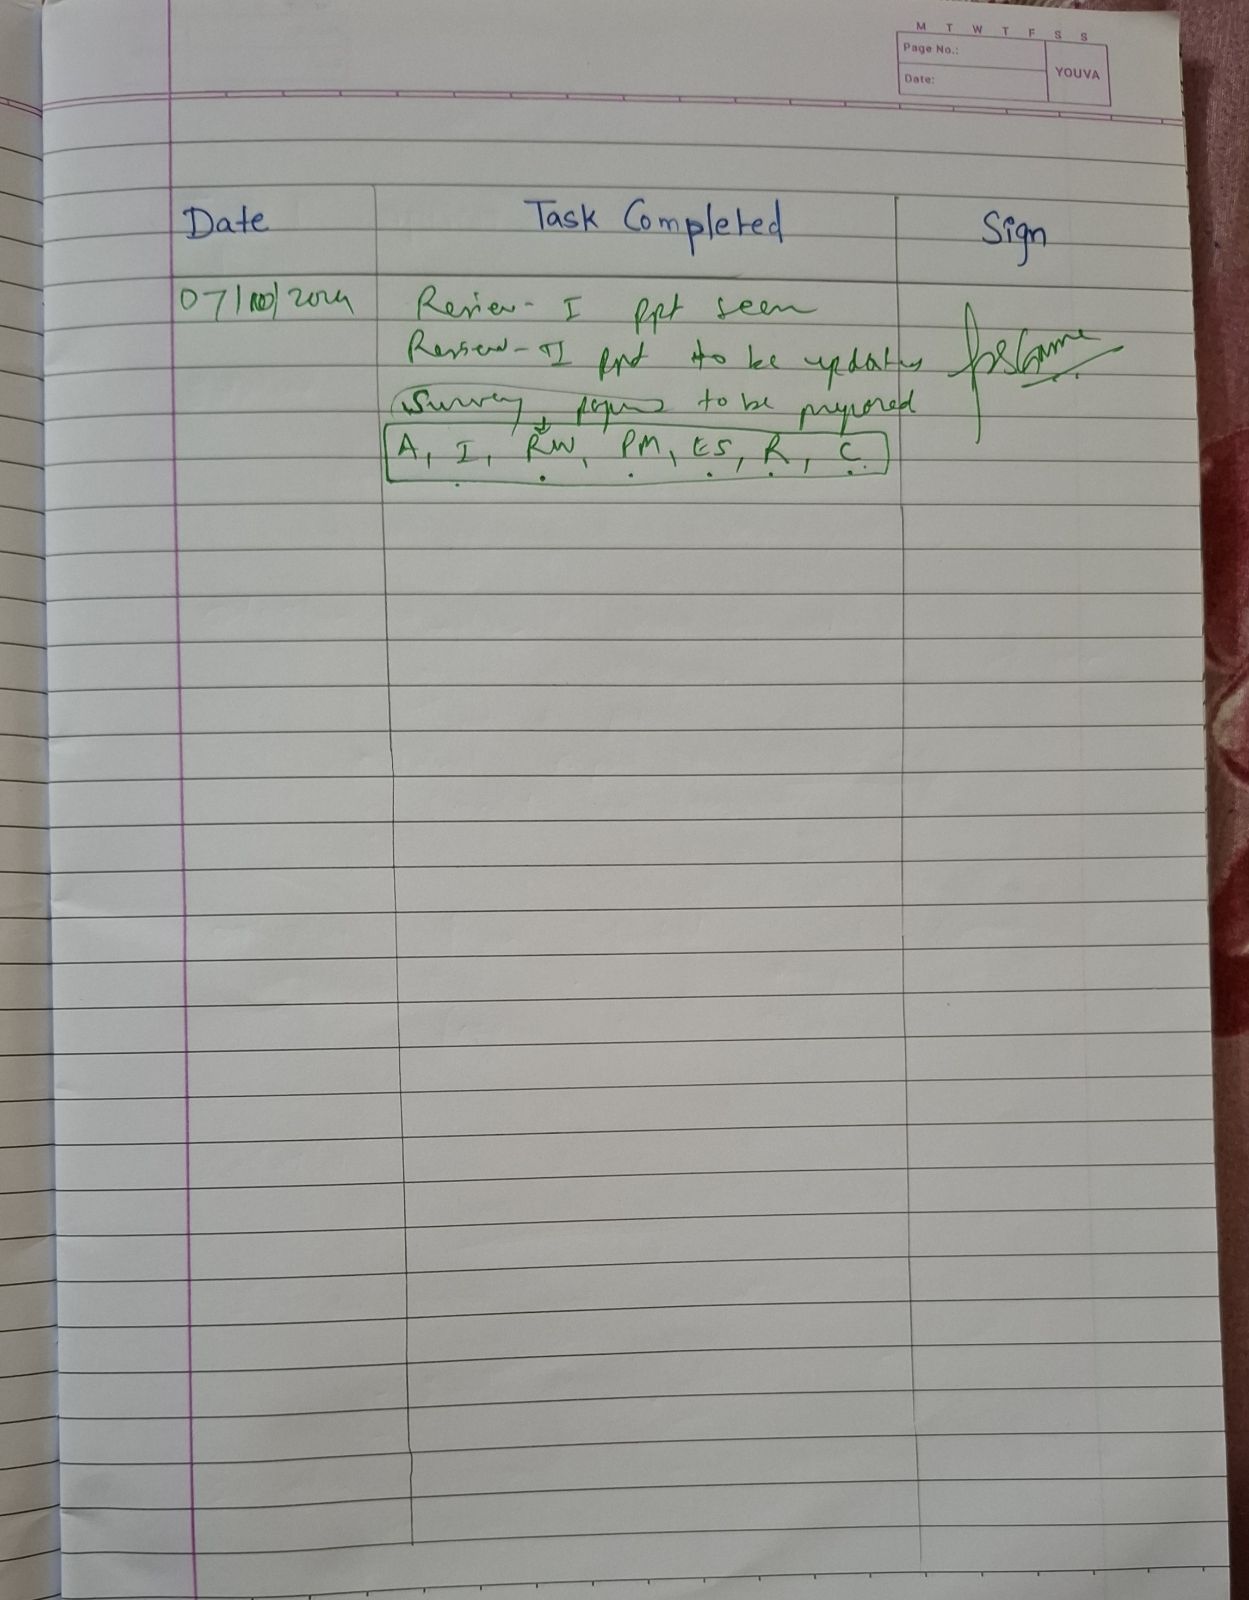 M T W T F S S
Page No.:
YOUVA
Date:
Date Task Completed Sign
07/10/2024 Review - I ppt seen
Review - II ppt to be updated
Survey papers to be prepared
A, I, RW, PM, ES, R, C.